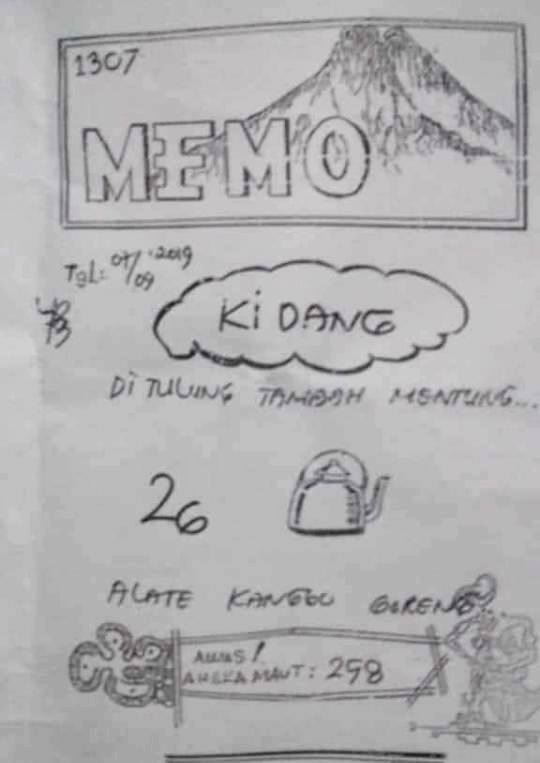 1307
MEMO
Tgl: 07/09 - 2019
Ki DANG
Di TULUNG TAMBAH MENTUNG...
26
ALATE KANGGO GORENG..
AWAS!
ANGKA MAUT: 298